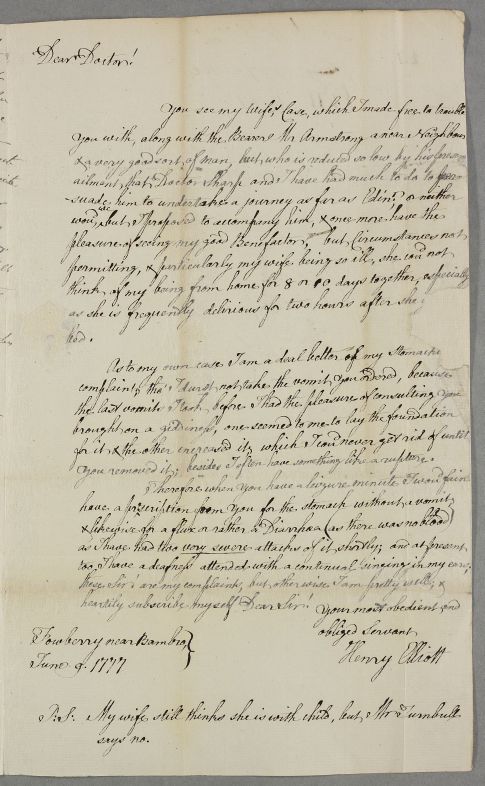 Dear Doctor!
You see my Wife's Case, which I made free to trouble
You with, along with the Bearer Mr Armstrong a near Neighbour
& a very good sort of man, but who is reduced so low by his
ailment, that Doctor Sharp and I have had much to do to per-
suade him to undertake a journey as far as Edinr. or neither
wou'd he, but I proposed to accompany him, & once more have the
pleasure of seeing my good Benefactor, but Circumstances not
permitting, & particularly my wife being so ill, she cou'd not
think of my being from home for 8 or 10 days together, especially
as she is frequently delirious for two hours after she
bed.
As to my own case I am a deal better of my Stomach
complaint, tho' I durst not take the vomit You ordered, because
the last vomits I took before I had the pleasure of consulting You
brought on a gidiness, one seemed to me to lay the foundation
for it & the other increased it, which I cou'd never get rid of until
You removed it; besides I often have something like a rupture.
Therefore when You have a leizure minute I wou'd fain
have a prescription from You for the stomach without a vomit,
& likewise for a flux or rather a Diarrhœa (as there was no blood)
as I have had two very severe attacks of it shortly; and at present
too, I have a deafness attended with a continual singing in my ears;
these Sir! are my complaints, but otherwise I am pretty well, &
heartily subscribe myself Dear Sir!
Your most obedient and
obliged Servant
Henry Elliott
Fowberry near Bambro
June 9. 1777
P.S. My wife still thinks she is with child, but Mr Turnbull
says no.